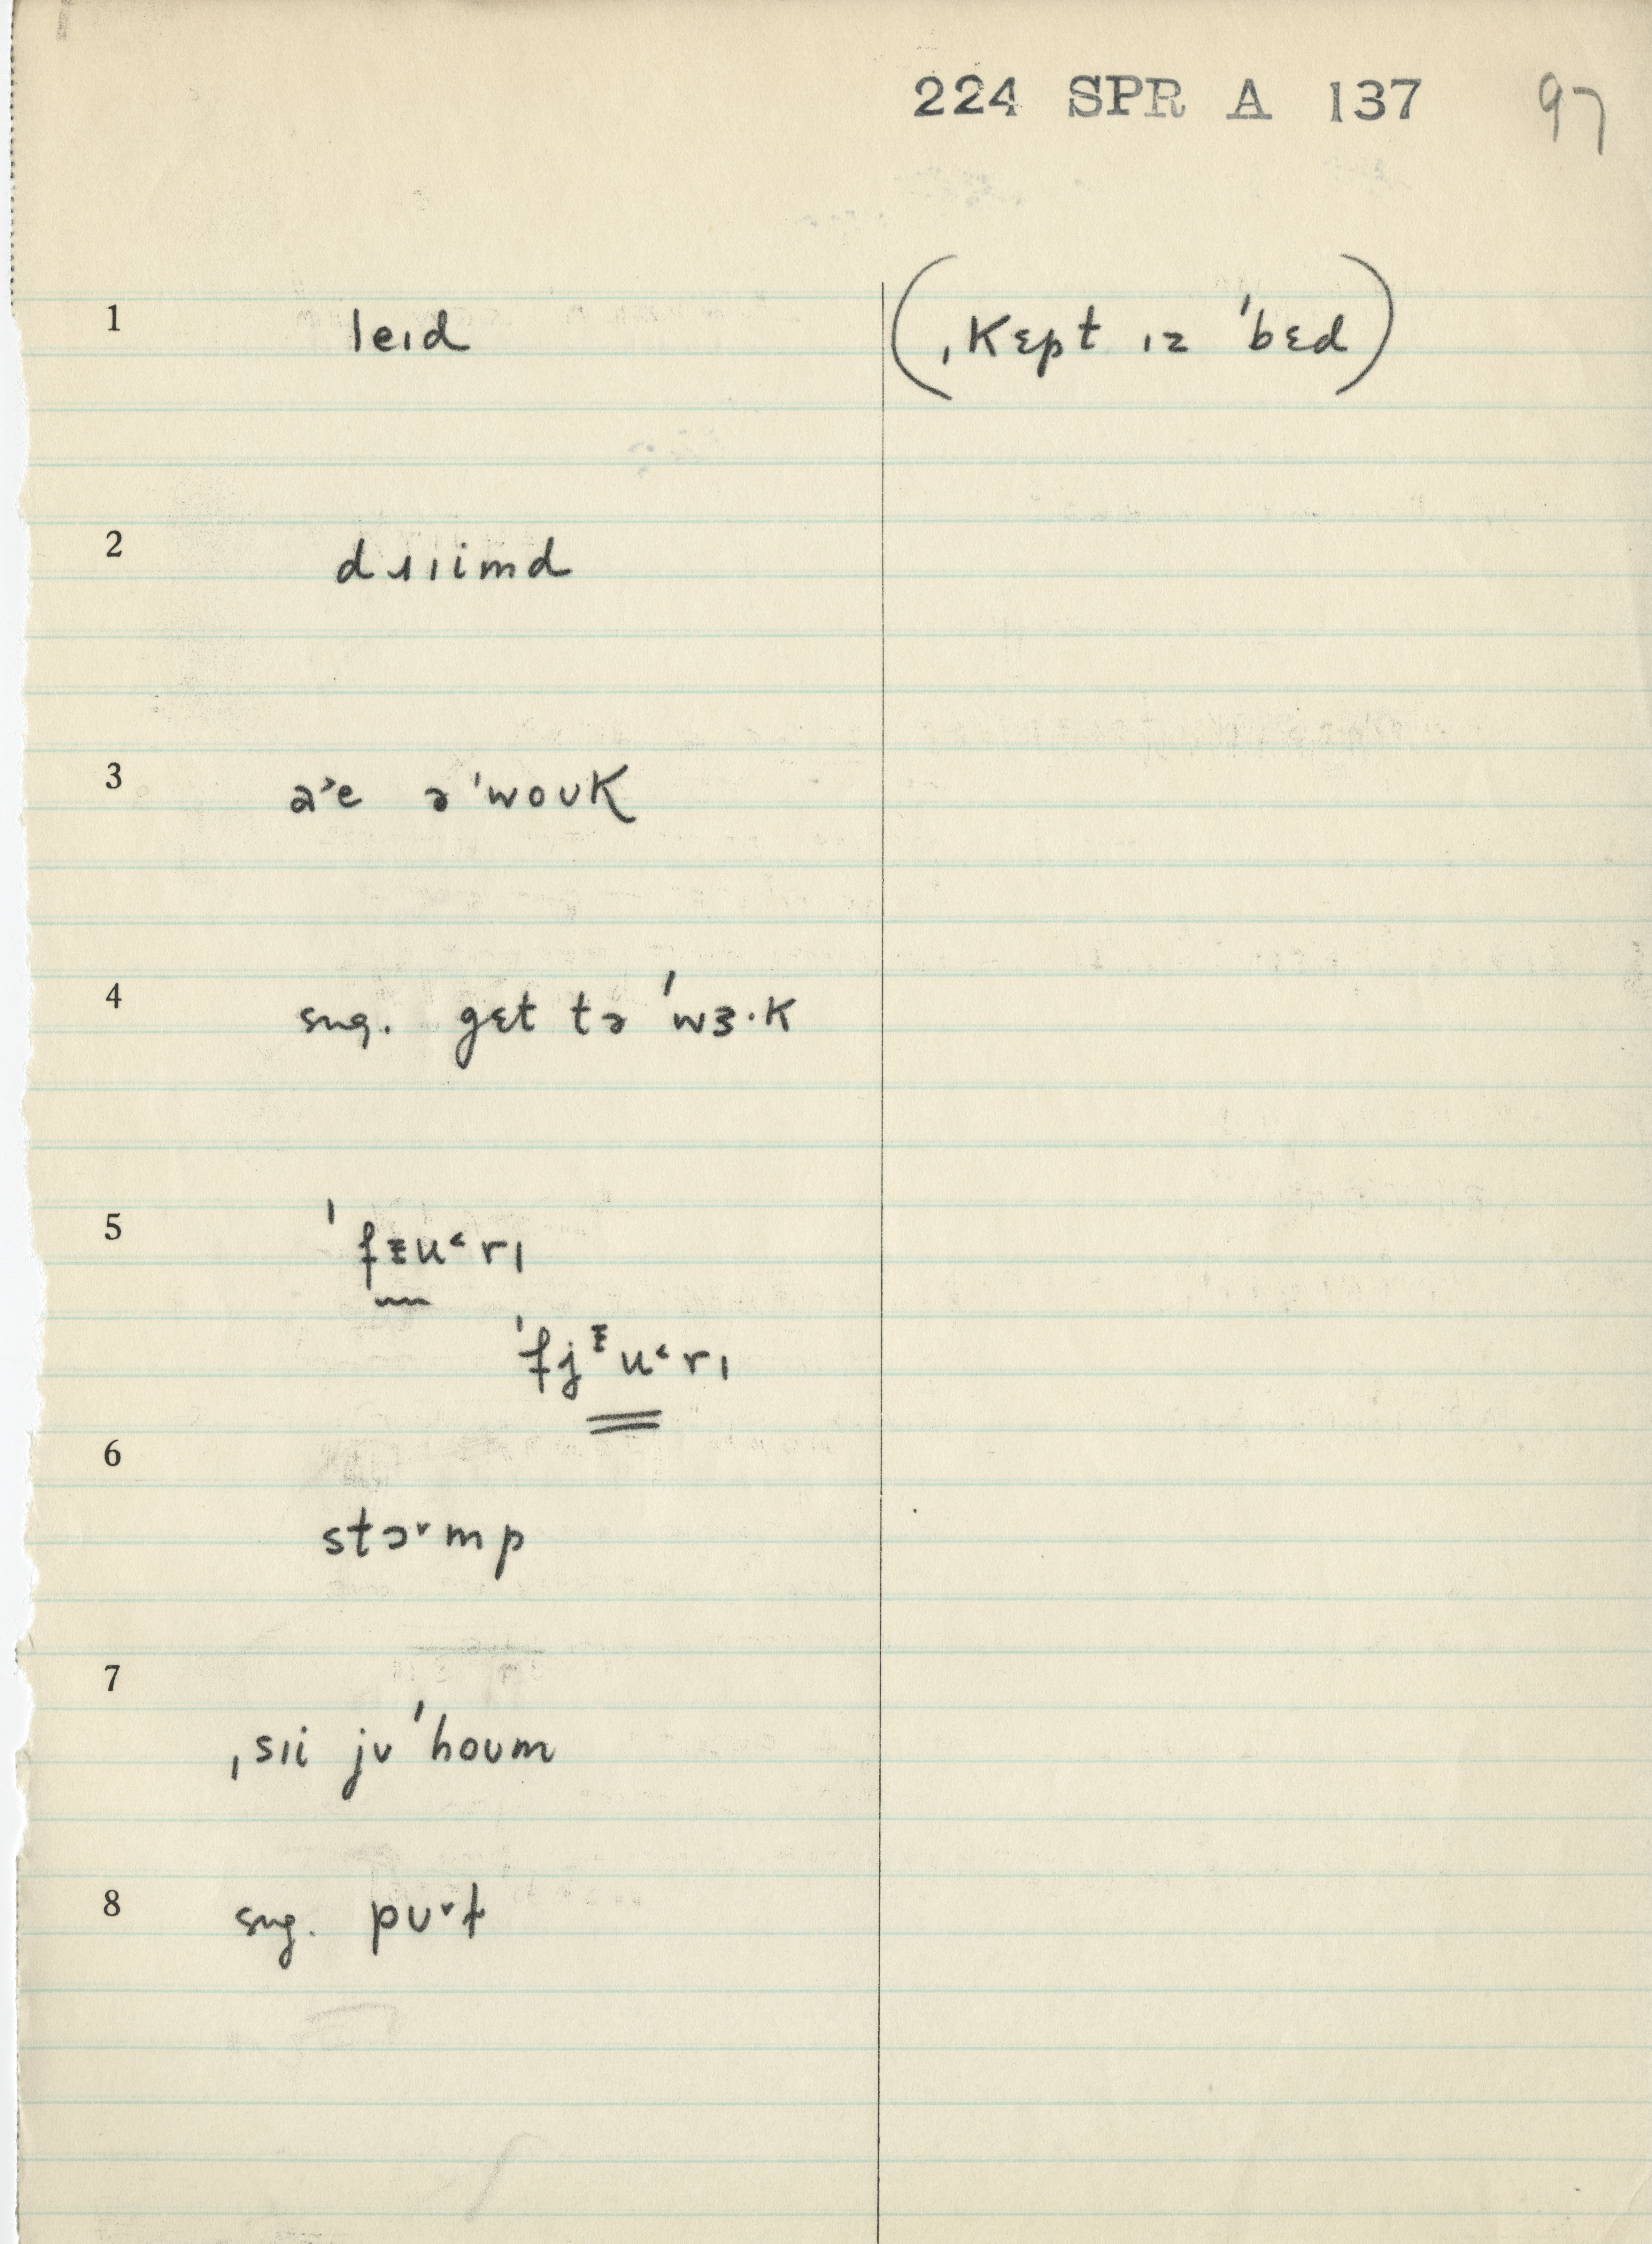 224 SPR A 137 97
1 leɪd (ˌkɛpt ɪz ˈbɛd)
2 dɹɪimd
3 a˃e əˈwoʊk
4 sug. gɛt tə ˈwɜ·k
5 ˈfᵻu˂rɪ
ˈfjᵻu˂rɪ
6 stɔ˅mp
7 ˌsɪi jʊ ˈhoʊm
8 sug. pʊ˅t